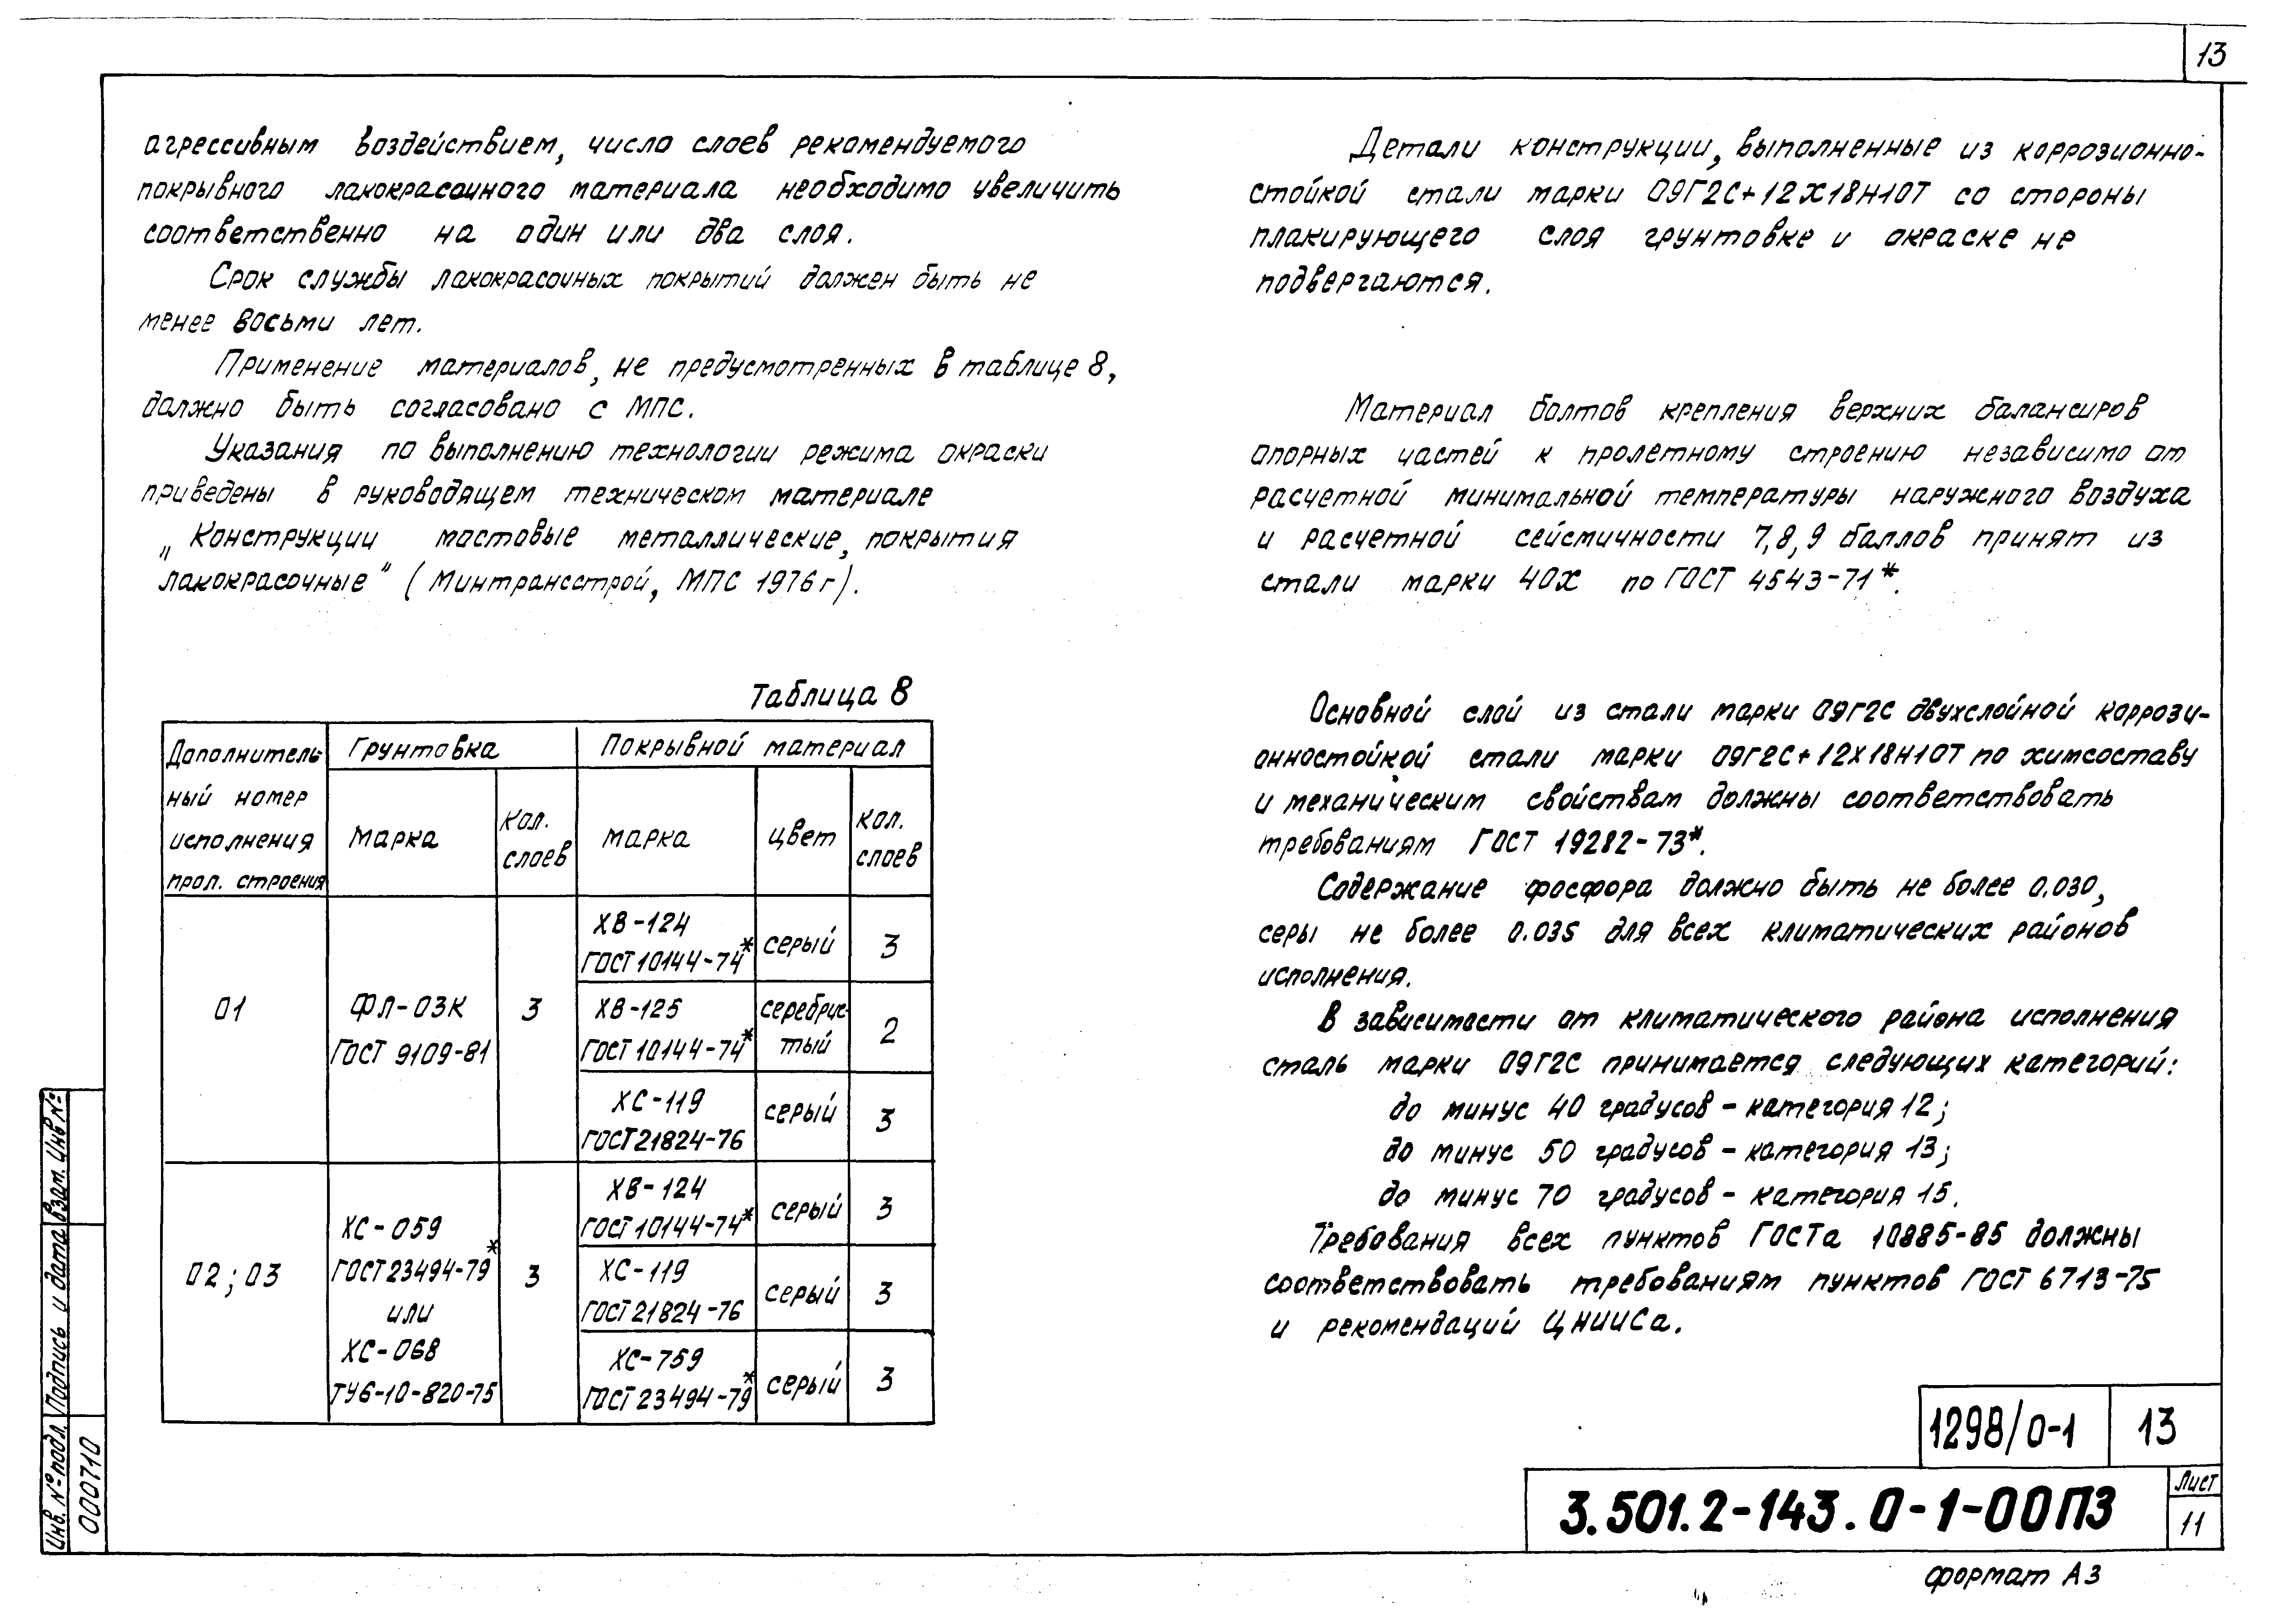 13
агрессивным воздействием, число слоев рекомендуемого
покрывного лакокрасочного материала необходимо увеличить
соответственно на один или два слоя.
Срок службы лакокрасочных покрытий должен быть не
менее восьми лет.
Применение материалов, не предусмотренных в таблице 8,
должно быть согласовано с МПС.
Указания по выполнению технологии режима окраски
приведены в руководящем техническом материале
„Конструкции мостовые металлические, покрытия
лакокрасочные" (Минтрансстрой, МПС 1976г).
Таблица 8
Дополнитель-
ный номер
исполнения
прол. строения
Грунтовка
Покрывной материал
марка
кол.
слоев
марка
цвет
кол.
слоев
01
ФЛ-03К
ГОСТ 9109-81
3
ХВ-124
ГОСТ 10144-74*
серый
3
ХВ-125
ГОСТ 10144-74*
серебрис-
тый
2
ХС-119
ГОСТ 21824-76
серый
3
02; 03
ХС-059
ГОСТ 23494-79*
или
ХС-068
ТУ6-10-820-75
3
ХВ-124
ГОСТ 10144-74*
серый
3
ХС-119
ГОСТ 21824-76
серый
3
ХС-759
ГОСТ 23494-79*
серый
3
Детали конструкции, выполненные из коррозионно-
стойкой стали марки 09Г2С+12Х18Н10Т со стороны
плакирующего слоя грунтовке и окраске не
подвергаются.
Материал болтов крепления верхних балансиров
опорных частей к пролетному строению независимо от
расчетной минимальной температуры наружного воздуха
и расчетной сейсмичности 7,8,9 баллов принят из
стали марки 40Х по ГОСТ 4543-71*.
Основной слой из стали марки 09Г2С двухслойной корро­зи-
онностойкой стали марки 09Г2С+12Х18Н10Т по химсоставу
и механическим свойствам должны соответствовать
требованиям ГОСТ 19282-73*.
Содержание фосфора должно быть не более 0.030,
серы не более 0.035 для всех климатических районов
исполнения.
В зависимости от климатического района исполнения
сталь марки 09Г2С принимается следующих категорий:
до минус 40 градусов - категория 12;
до минус 50 градусов - категория 13;
до минус 70 градусов - категория 15.
Требования всех пунктов ГОСТа 10885-85 должны
соответствовать требованиям пунктов ГОСТ 6713-75
и рекомендаций ЦНИИСа.
1298/0-1
13
3.501.2-143.0-1-00ПЗ
Лист
11
формат А3
Инв. № подл.
Подпись и дата
Взам. инв №
000710